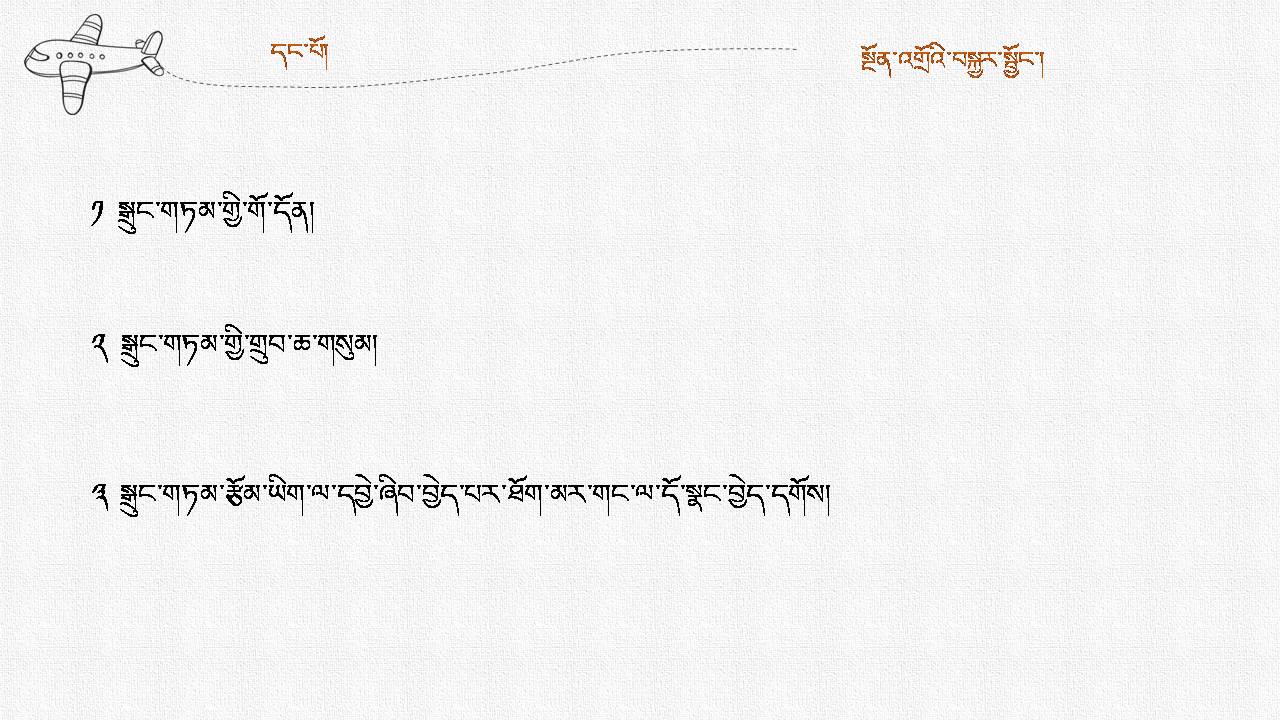 དང་པོ།
སྔོན་འགྲོའི་བསྐྱར་སྦྱོང་།
༡ སྒྲུང་གཏམ་གྱི་གོ་དོན།
༢ སྒྲུང་གཏམ་གྱི་གྲུབ་ཆ་གསུམ།
༣ སྒྲུང་གཏམ་རྩོམ་ཡིག་ལ་དབྱེ་ཞིབ་བྱེད་པར་ཐོག་མར་གང་ལ་དོ་སྣང་བྱེད་དགོས།